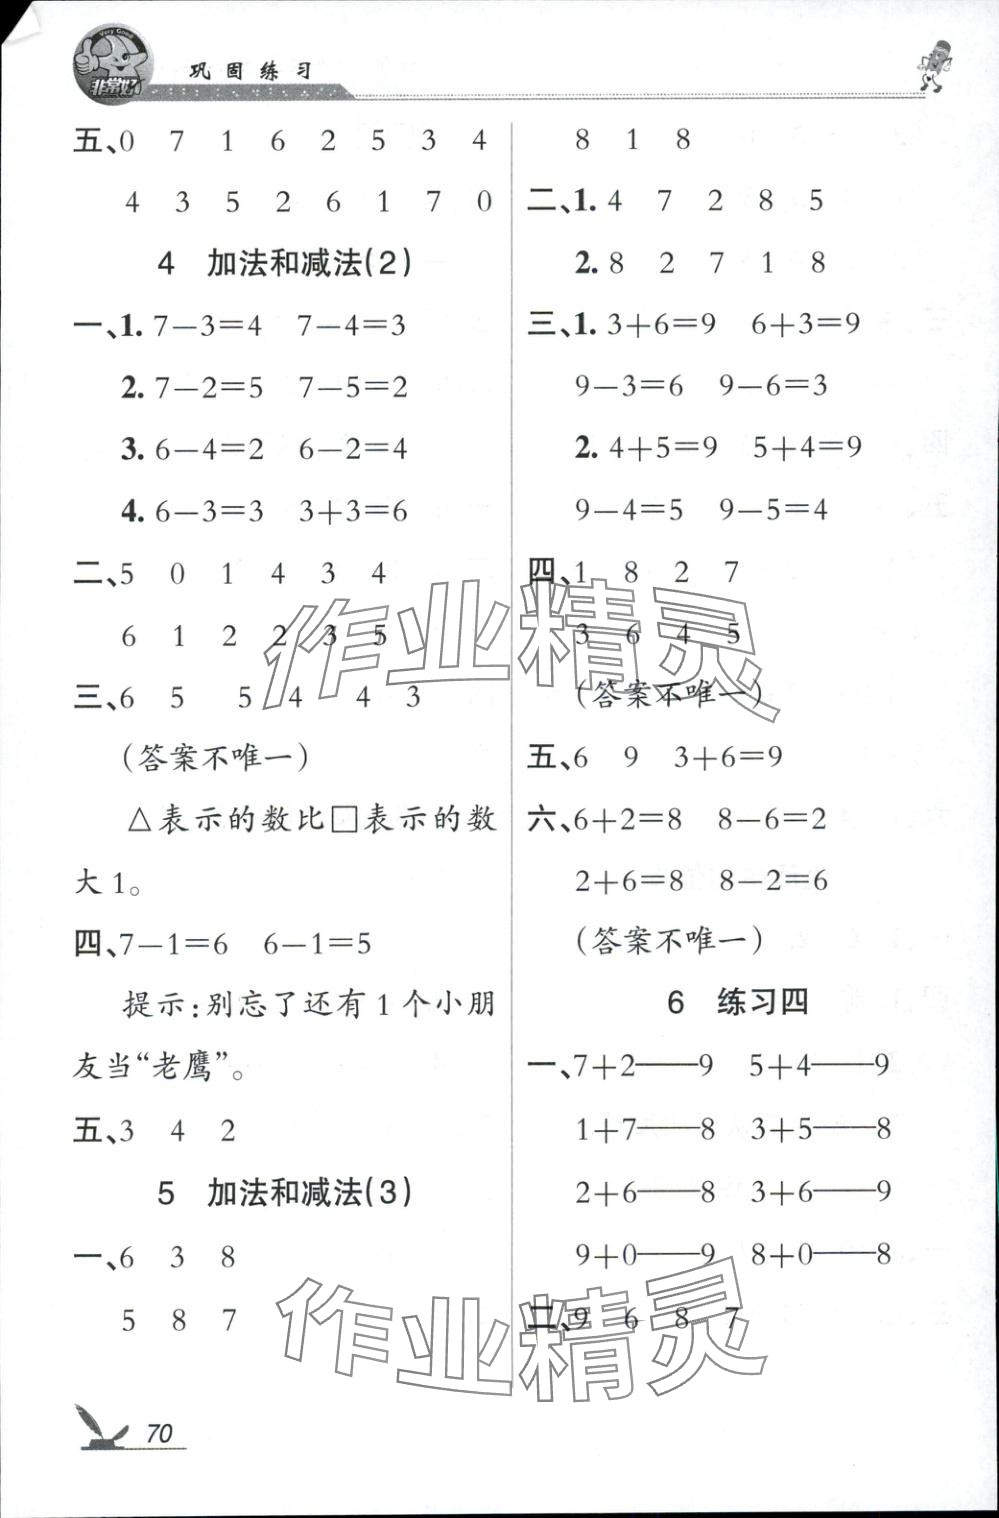 Very Good
非常好
巩固练习
五、0 7 1 6 2 5 3 4
4 3 5 2 6 1 7 0
4 加法和减法(2)
一、1. 7－3＝4 7－4＝3
2. 7－2＝5 7－5＝2
3. 6－4＝2 6－2＝4
4. 6－3＝3 3＋3＝6
二、5 0 1 4 3 4
6 1 2 2 3 5
三、6 5 5 4 4 3
(答案不唯一)
△表示的数比□表示的数
大1。
四、7－1＝6 6－1＝5
提示:别忘了还有1个小朋
友当“老鹰”。
五、3 4 2
5 加法和减法(3)
一、6 3 8
5 8 7
8 1 8
二、1. 4 7 2 8 5
2. 8 2 7 1 8
三、1. 3＋6＝9 6＋3＝9
9－3＝6 9－6＝3
2. 4＋5＝9 5＋4＝9
9－4＝5 9－5＝4
四、1 8 2 7
3 6 4 5
(答案不唯一)
五、6 9 3＋6＝9
六、6＋2＝8 8－6＝2
2＋6＝8 8－2＝6
(答案不唯一)
6 练习四
一、7＋2——9 5＋4——9
1＋7——8 3＋5——8
2＋6——8 3＋6——9
9＋0——9 8＋0——8
二、9 6 8 7
作业精灵
作业精灵
70